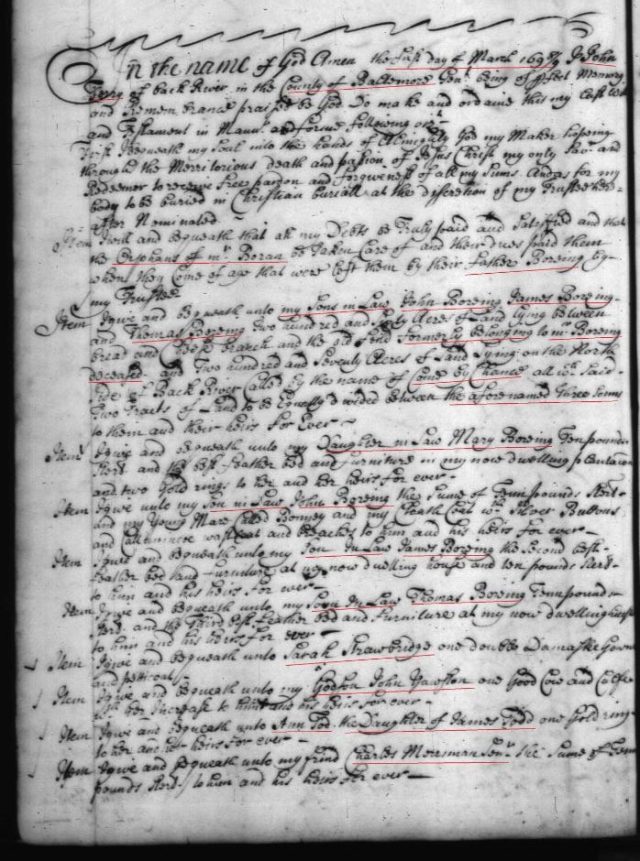 In the name of God Amen the first day of March 169 7/8 I John
Ferry of back River in the County of Baltemore Gent being of pfect Memory
and Remembrance praised be God do make and ordaine this my last will
and Testament in Mannr and forme following
First I bequeath my Soul into the hands of Almighty God my Maker hopeing
through the Merritorious death and passion of Jesus Christ my only Savr and
Redeemer to receive free pardon and forgiveness of all my Sinns And as for my
body to be buried in Christian buriall at the discretion of my Trustee here
after Nominated
Item I will and bequeath that all my Debts be Truly paid and Satisfied and that
the Orphans of mr Boran be Taken Care of and their dues paid them
when they Come of age that were left them by their father Boreing by
my Trustee
Item I give and bequeath unto my Sons in Law John Boreing James Boreing
and Thomas Boreing Two hundred and Acres of Land lying between
bread and Cheese branch and the old formerly belonging to mr Boreing
deceased and Two hundred and Seventy Acres of Land Lying on the North
side of Back River Called by the name of Come by Chance all wch said
Two Tracts of Land to be Equally devided between the aforenamed three Sonns
to them and their heirs for Ever
Item I give and bequeath unto my Daughter in Law Mary Boreing Tenn pounds
Sterl and the best feather bed and furniture in my now dwelling plantacon
and two gold rings to her and her heirs for ever
Item I give unto my son in Law John Boreing the Sume of Tenn pounds Sterl
and my young Mare Called Bonney and my Cloath Coat wth Silver Buttons
and wastcoat and breaches to him and his heirs for ever
Item I give and bequeath unto my Son in Law James Boreing the Second best
feather bed and furniture at my now dwelling house and ten pounds Sterl
to him and his heirs for ever
Item I give and bequeath unto my Son in Law Thomas Boreing Tenn pounds
Sterl and the Third best feather bed and furniture at my now dwelling house
to him and his heirs for ever
Item I give and bequeath unto Sarah Strawbridge one double Damaske Gowne
and petticoat
Item I give and bequeath unto my Godson John one Good Cow and Calfe
with her increase to him and his heirs for ever
Item I give and bequeath unto Ann Tod the Daughter of James Todd one Gold ring
to her and her heirs for ever
Item I give and bequeath unto my frind Charles Merryman Senr the Sume of Tenn
pounds Sterl to him and his heirs for ever